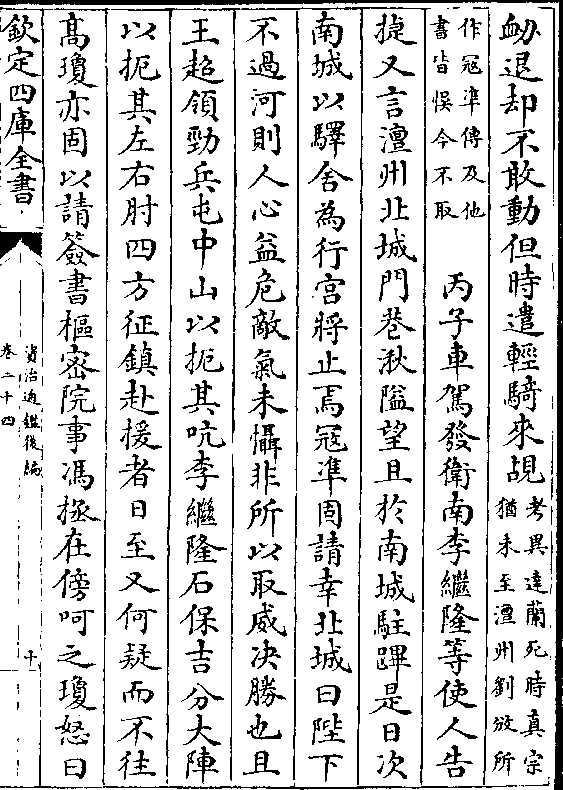 衂退却不敢動但時遣輕騎來覘考異達蘭死時真宗
猶未至澶州劉攽所
作冦準傳及他
書皆悞今不取
丙子車駕發衛南李繼隆等使人告
捷又言澶州北城門巷湫隘望且於南城駐蹕是日次
南城以驛舍為行宫將止焉冦準固請幸北城曰陛下
不過河則人心益危敵氣未懾非所以取威决勝也且
王超領勁兵屯中山以扼其吭李繼隆石保吉分大陣
以扼其左右肘四方征鎮赴援者日至又何疑而不往
髙瓊亦固以請簽書樞密院事馮拯在傍呵之瓊怒曰
欽定四庫全書
資治通鑑後編
卷二十四
十